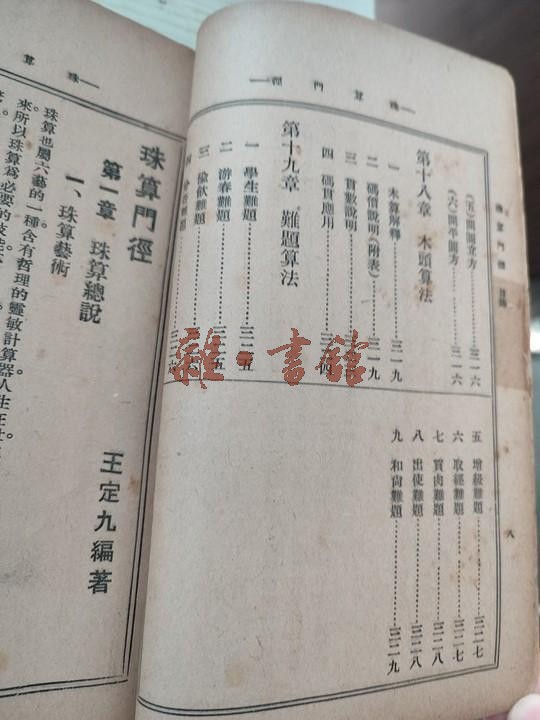 珠算門徑
(五)開開立方……三一六
(六)開平開方……三一六
第十八章 木頭算法
一 木算解釋……三一九
二 碼價說明(附表)……三一九
三 貫數說明
四 碼貫應用
第十九章 難題算法
一 學生難題……三二五
二 游春難題
三 偸飲難題
五 增級難題……三二七
六 取經難題……三二七
七 買肉難題……三二八
八 出使難題……三二八
九 和尙難題……三二九
八
雜·書館
珠算
珠算門徑
王定九編著
第一章 珠算總說
一、珠算藝術
珠算也屬六藝的一種含有哲理的靈敏計算器。人生在
來所以珠算爲必要的技